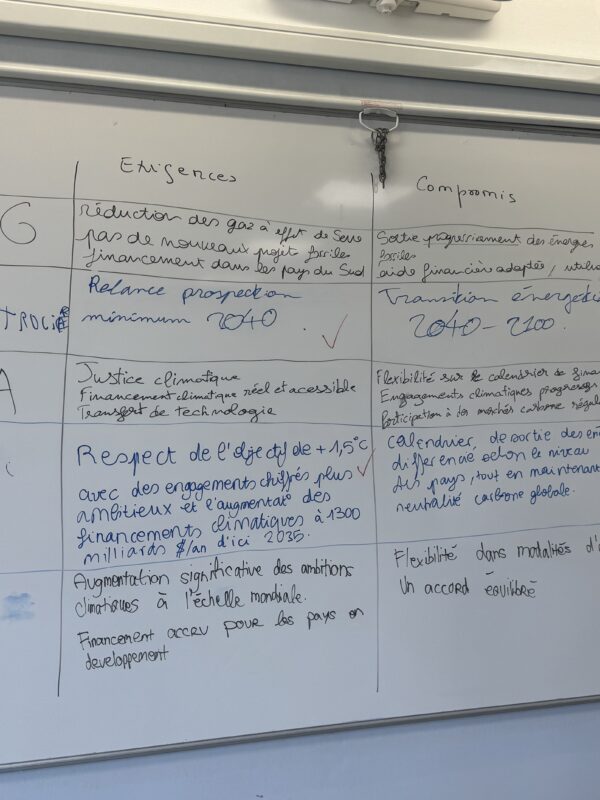 Exigences
Compromis
G
réduction des gaz à effet de Serre
pas de nouveaux projet fossiles
financement dans les pays du Sud
Sortie progressivement des énergies
fossiles
aide financière adaptée, utilis
TROLIE
Relance prospection
minimum 2040
Transition énergéti
2040 - 2100.
A
Justice climatique
Financement climatique réel et acessible
Transfert de technologie
Flexibilité sur le calendrier de finan
Engagements climatiques progress
Participation à des marchés carbone régul
Respect de l'objectif de +1,5°C
avec des engagements chiffrés plus
ambitieux et l'augmentat° des
financements climatiques à 1300
milliards $/an d'ici 2035.
calendrier, de sortie des én
différencié selon le niveau
des pays, tout en maintenant
neutralité carbone globale.
Augmentation significative des ambitions
climatiques à l'échelle mondiale.
Financement accru pour les pays en
developpement
Flexibilité dans modalités d'
Un accord équilibré